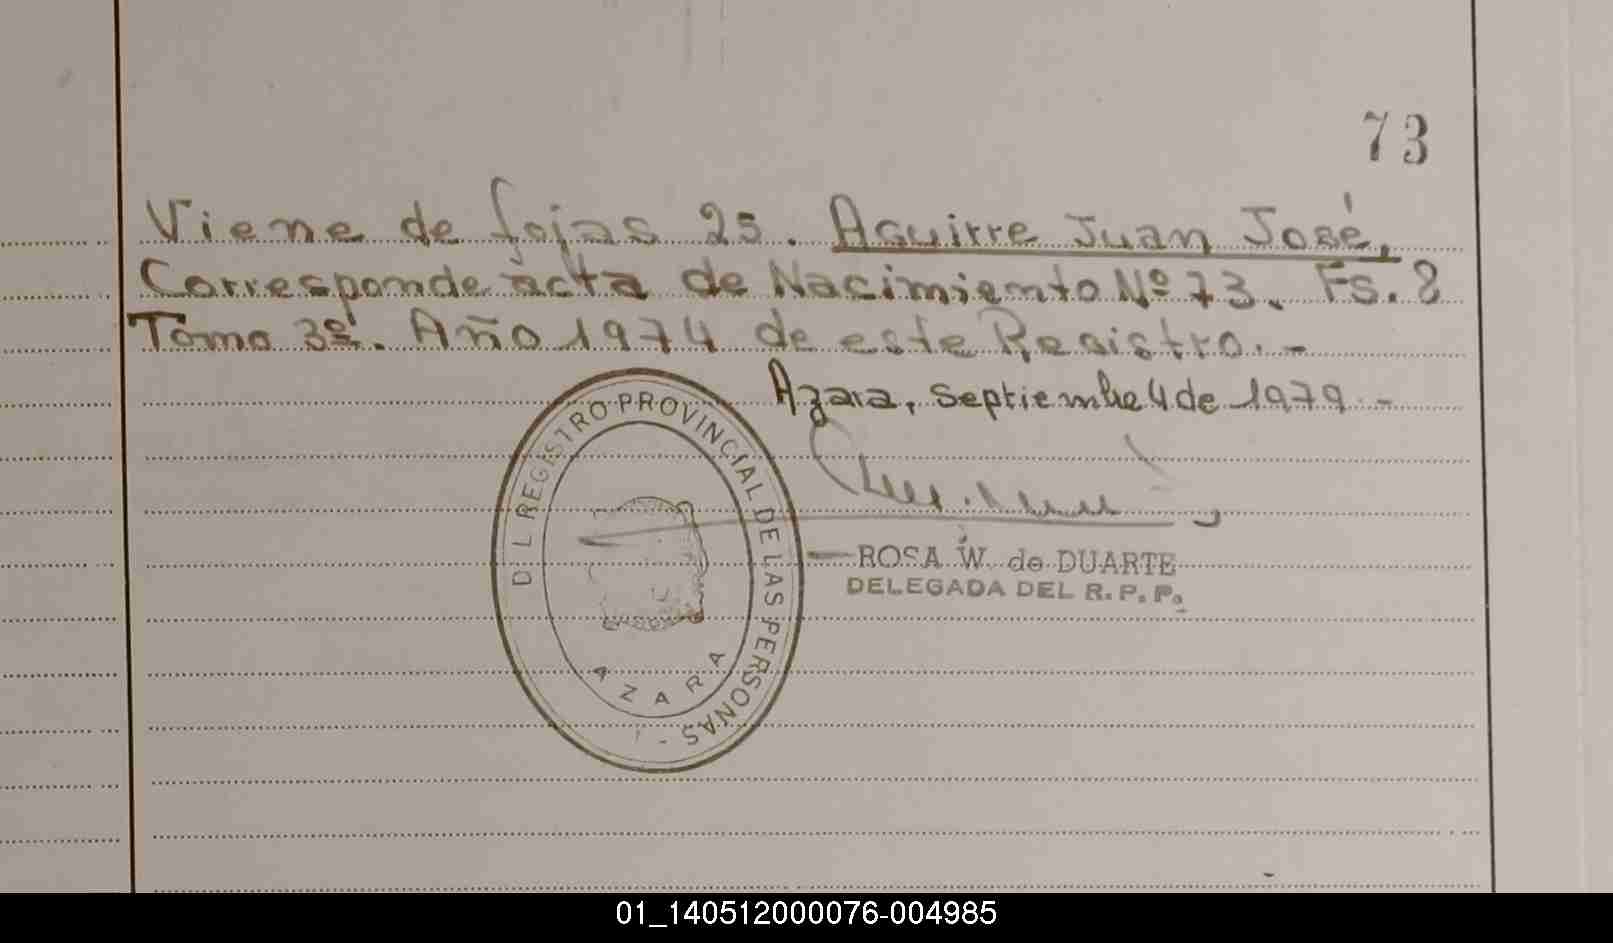 73
Viene de fojas 25. Aguirre Juan José,
Corresponde acta de Nacimiento Nº 73. Fs. 8
Tomo 3º. Año 1974 de este Registro. -
Azara, Septiembre 4 de 1979. -
D L REGISTRO PROVINCIAL DE LAS PERSONAS -
AZARA
ROSA W. de DUARTE
DELEGADA DEL R. P. P.
01_140512000076-004985